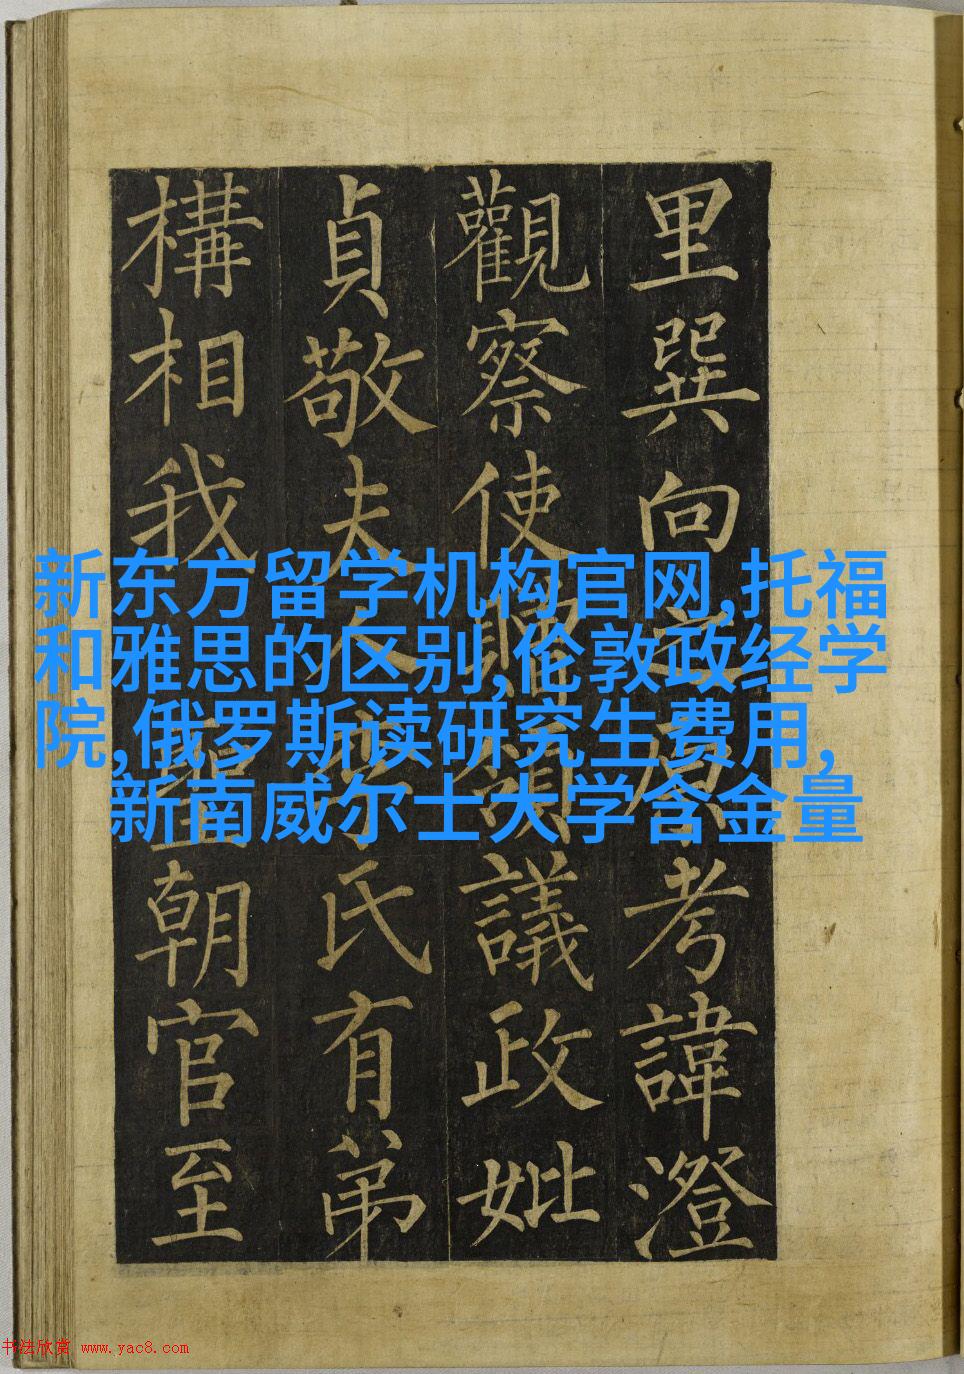 里巽向之原考諱澄
觀察使贈領議政妣
貞敬夫人李氏有弟
構相我聖朝官至
新东方留学机构官网,托福
和雅思的区别,伦敦政经学
院,俄罗斯读研究生费用,
新南威尔士大学含金量
书法欣赏 www.yac8.com